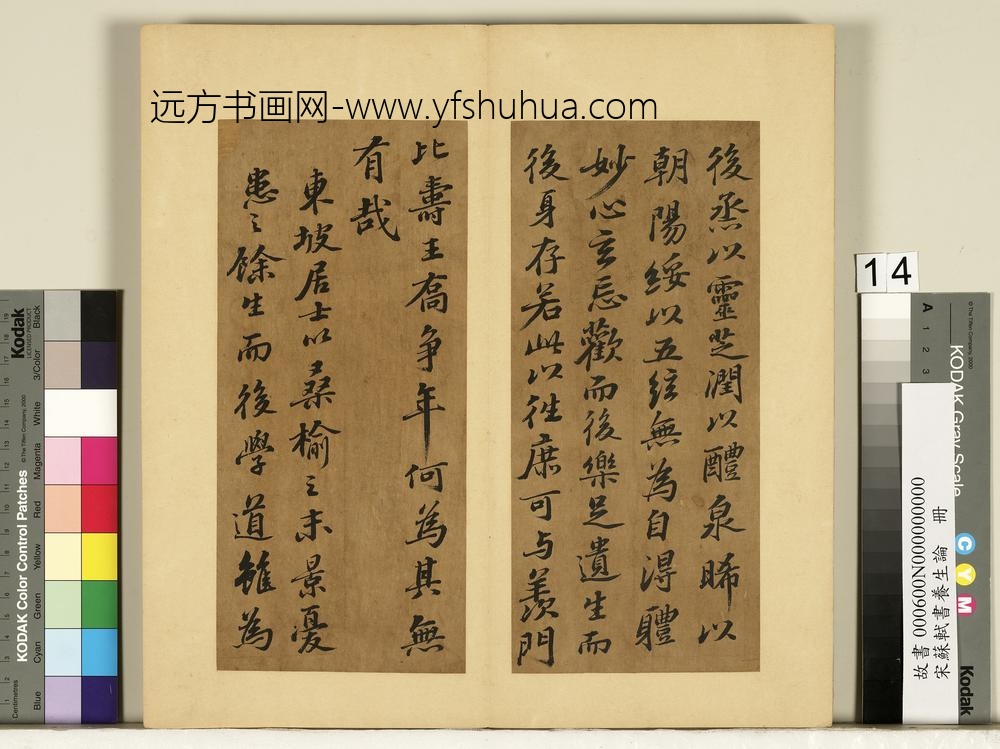 远方书画网-www.yfshuhua.com
後烝以靈芝潤以醴泉晞以
朝陽綏以五絃無為自淂軆
妙心玄忘歡而後樂足遺生而
後身存若此以徃庶可与羨門
比壽王喬争年何為其無
有哉
東坡居士以桑榆之末景憂
患之餘生而後學道雖為
14
Kodak
LICENSED PRODUCT
KODAK Color Control Patches
© The Tiffen Company, 2000
Centimetres
Blue
Cyan
Green
Yellow
Red
Magenta
White
3/Color
Black
A 1 2 3
KODAK Gray Scale
© The Tiffen Company, 2000
C
Y
M
Kodak
故書 000600N000000000
宋蘇軾書養生論 冊